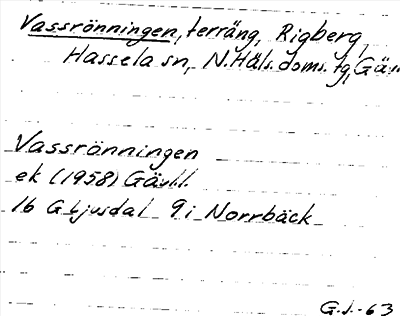 Vassrönningen, terräng, Rigberg,
Hassela sn, N. Häls. doms. tg, Gävl.
Vassrönningen
ek (1958) Gävl.l.
16 G Ljusdal 9 i Norrbäck
G.J.-63